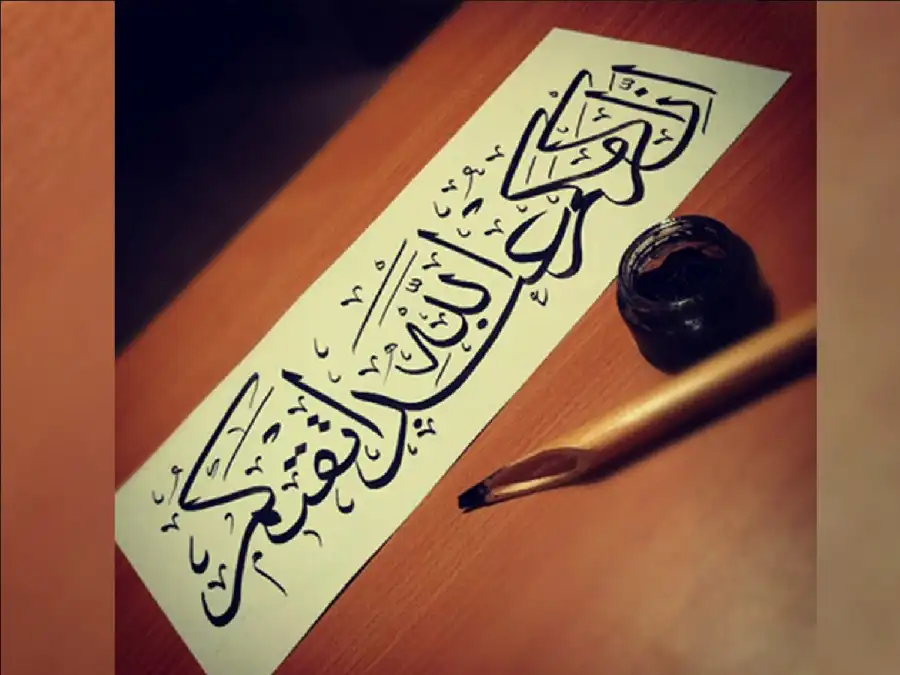 إن أكرمكم عند الله أتقاكم